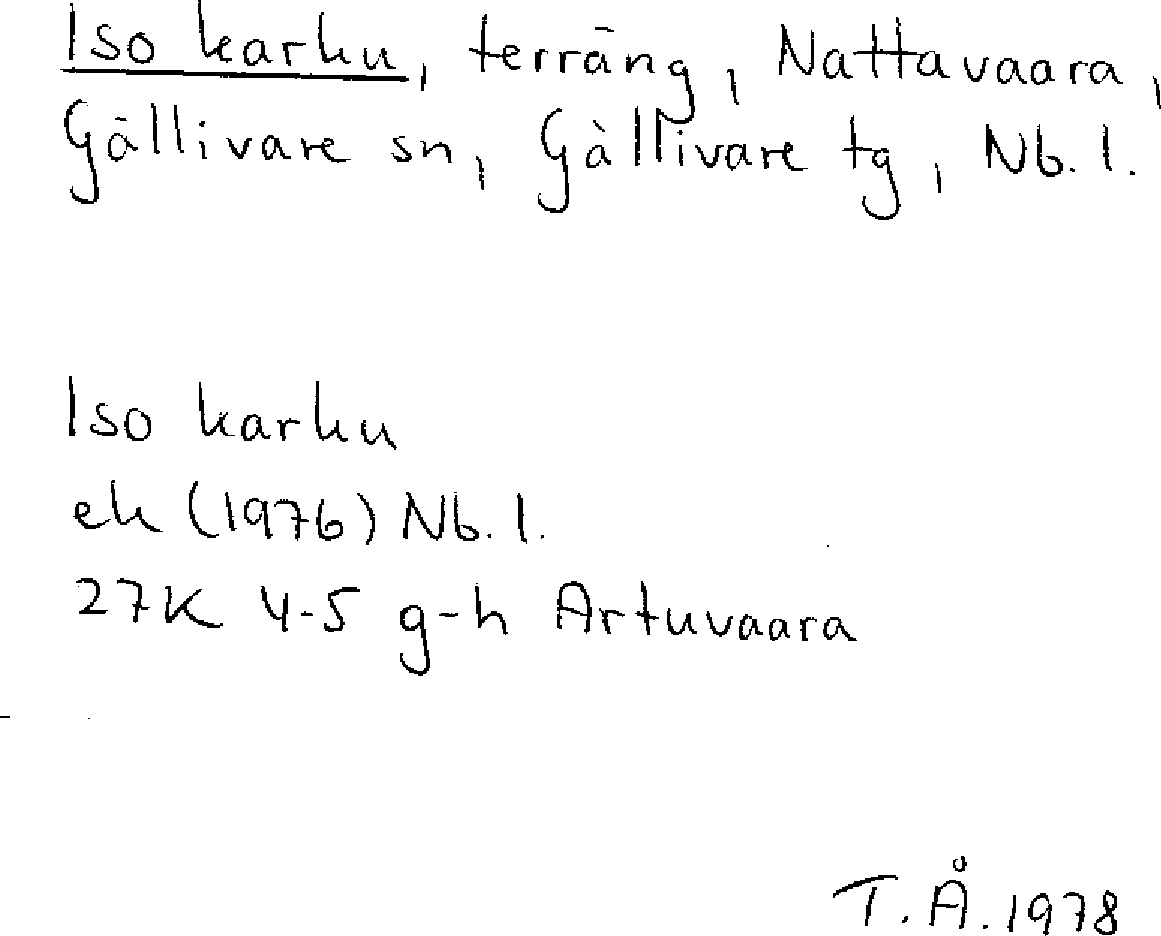 Iso karhu, terräng, Nattavaara,
Gällivare sn, Gällivare tg, Nb. l.
Iso karhu
ek (1976) Nb. l.
27K 4-5 g-h Artuvaara
T. Å. 1978